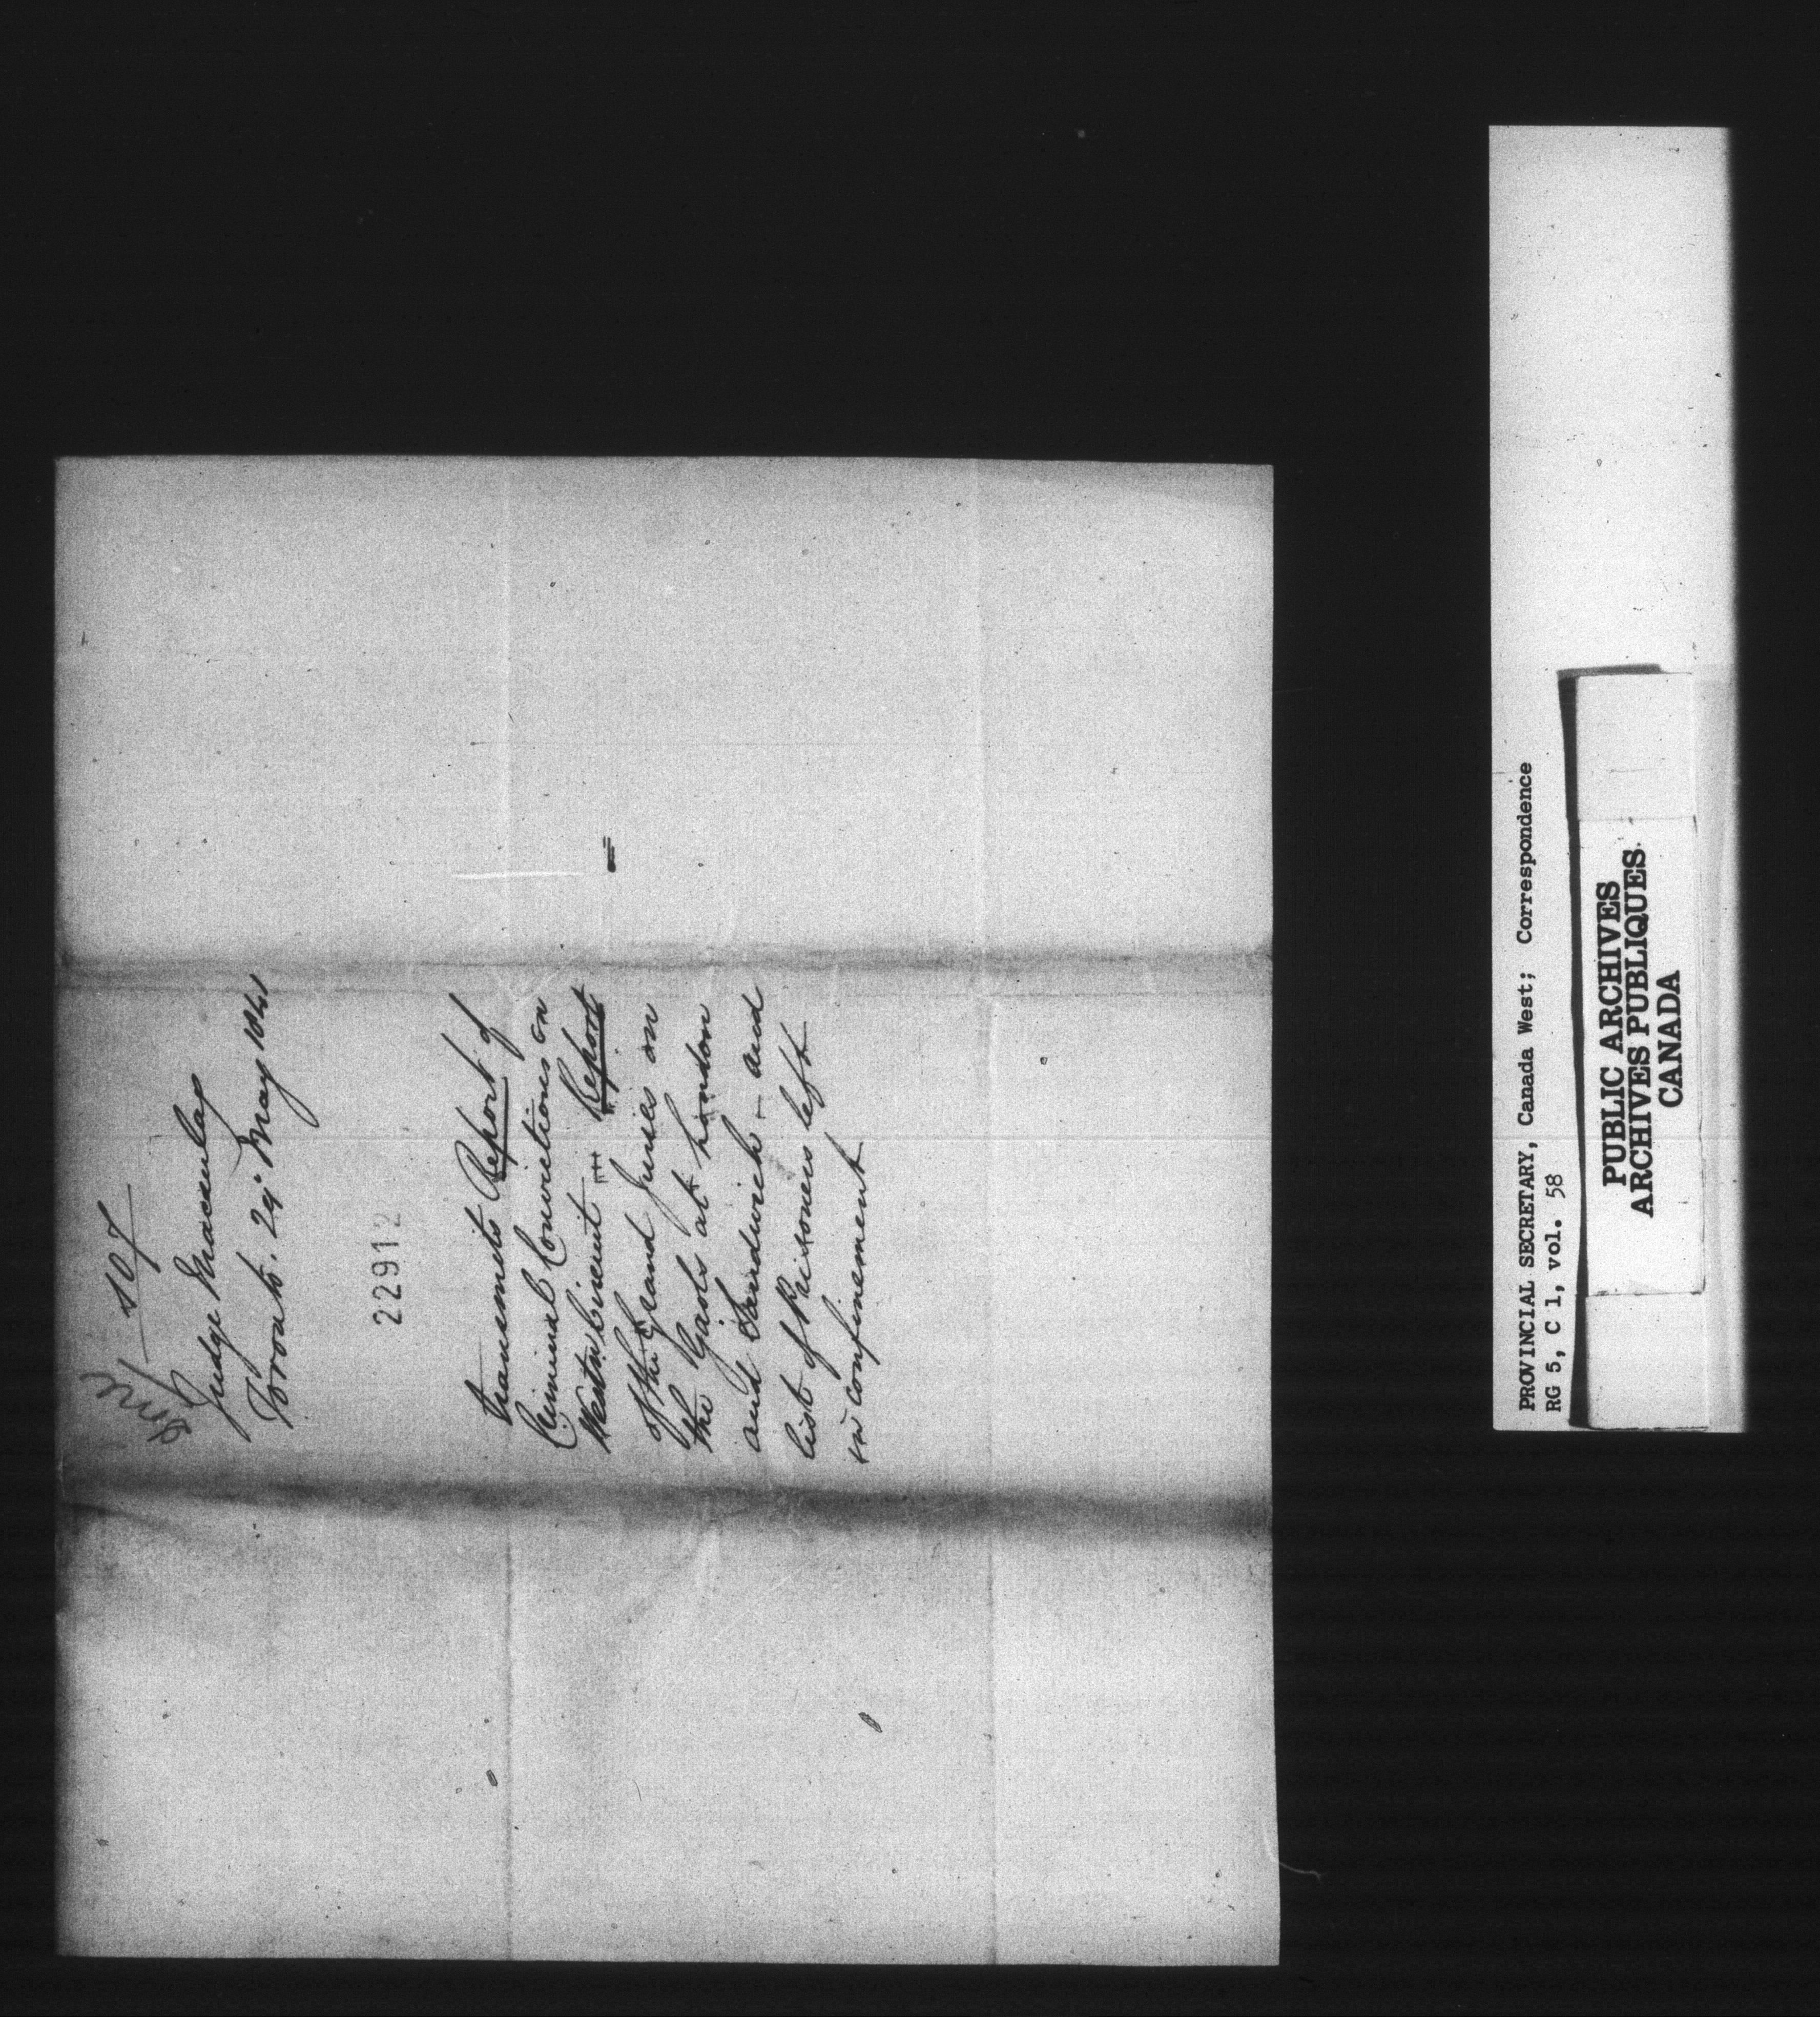 507
Judge Macaulay
Toronto. 29 May 1841
22912
Transmits Report of
Criminal Convictions on
Westn Circuit — Report
of the Grand Juries on
the Gaols at London
and Sandwich — and
list of Prisoners left
in confinement
PROVINCIAL SECRETARY, Canada West; Correspondence
RG 5, C 1, vol. 58
PUBLIC ARCHIVES
ARCHIVES PUBLIQUES
CANADA